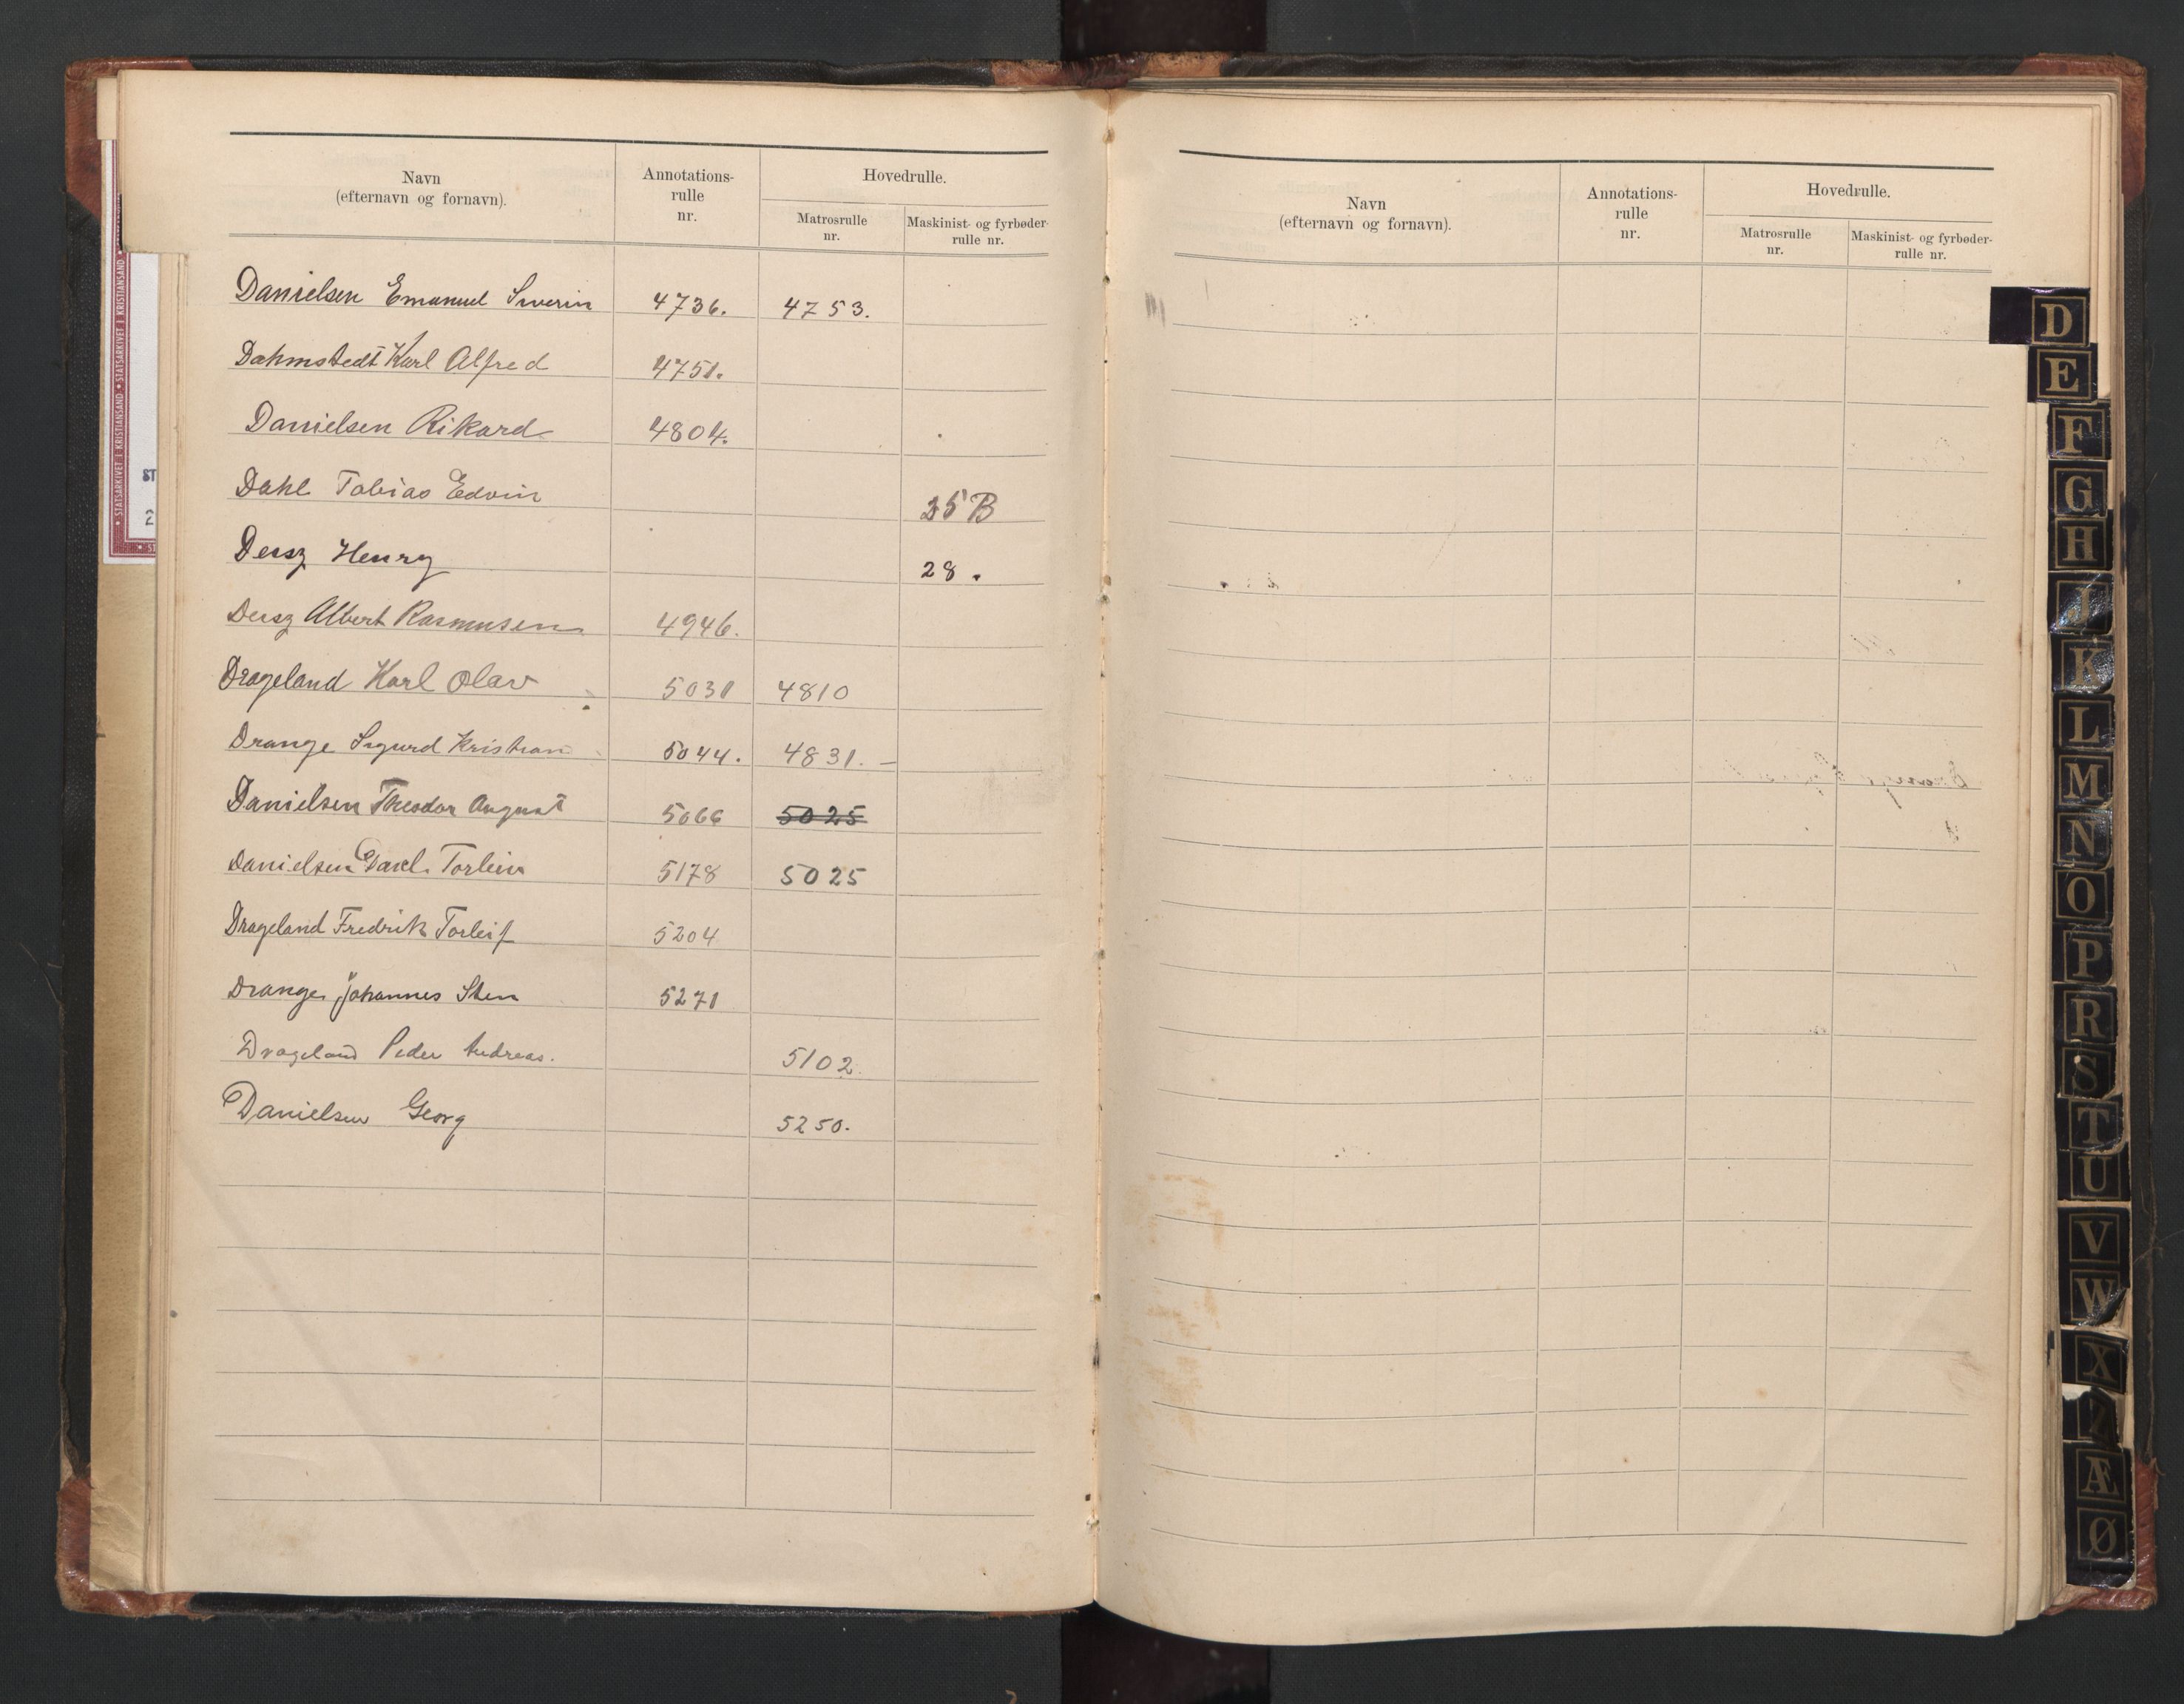 Navn
(efternavn og fornavn).
Annotations-
rulle
nr.
Hovedrulle.
Matrosrulle
nr.
Maskinist- og fyrbøder-
rulle nr.
Danielsen Emanuel Severin 4736. 4753.
Dahmstedt Karl Alfred 4751.
Danielsen Rikard 4804.
Dahl Tobias Edvin 25 B
Dersz Henry 28.
Dersz Albert Rasmusen 4946.
Drageland Karl Olav 5031 4810
Drange Sigurd Kristian 5044. 4831. –
Danielsen Theodor August 5066 5025
Danielsen Torlein 5178 5025
Drageland Fredrik Torleif 5204
Drange Johannes Sten 5271
Drageland Peder Andreas. 5102.
Danielsen Georg 5250.
Navn
(efternavn og fornavn).
Annotations-
rulle
nr.
Hovedrulle.
Matrosrulle
nr.
Maskinist- og fyrbøder-
rulle nr.
D
E
F
G
H
J
K
L
M
N
O
P
R
S
T
U
V
W
X
Z
Æ
Ø
STATSARKIVET I KRISTIANSAND • STATSARKIVET I KRISTIANSAND •
ST
2